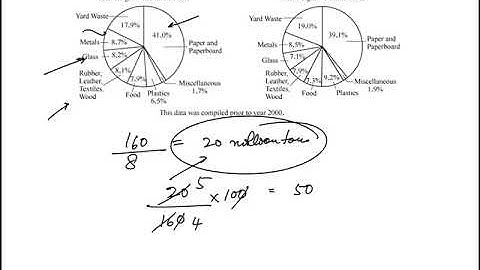 Yard Waste
17,9%
41,0%
Metals
8,7%
Paper and
Paperboard
Glass
8,2%
Rubber,
Leather,
Textiles,
Wood
8,1%
7,9%
Food
Plastics
6,5%
Miscellaneous
1,7%
Yard Waste
19,0%
39,1%
Metals
8,5%
Paper and
Paperboard
Glass
7,1%
Rubber,
Leather,
Textiles,
Wood
7,9%
7,3%
9,2%
Food
Plastics
Miscellaneous
1,9%
This data was compiled prior to year 2000.
160
8
= 20 million tons
20 5
160 4
× 100 = 50